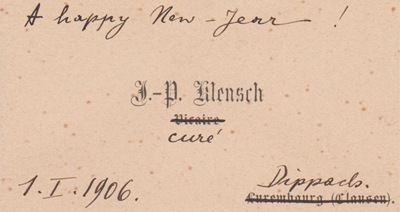 A happy New-Year !
J.-P. Klensch
Vicaire
curé
1. I. 1906.
Dippach.
Luxembourg (Clausen).